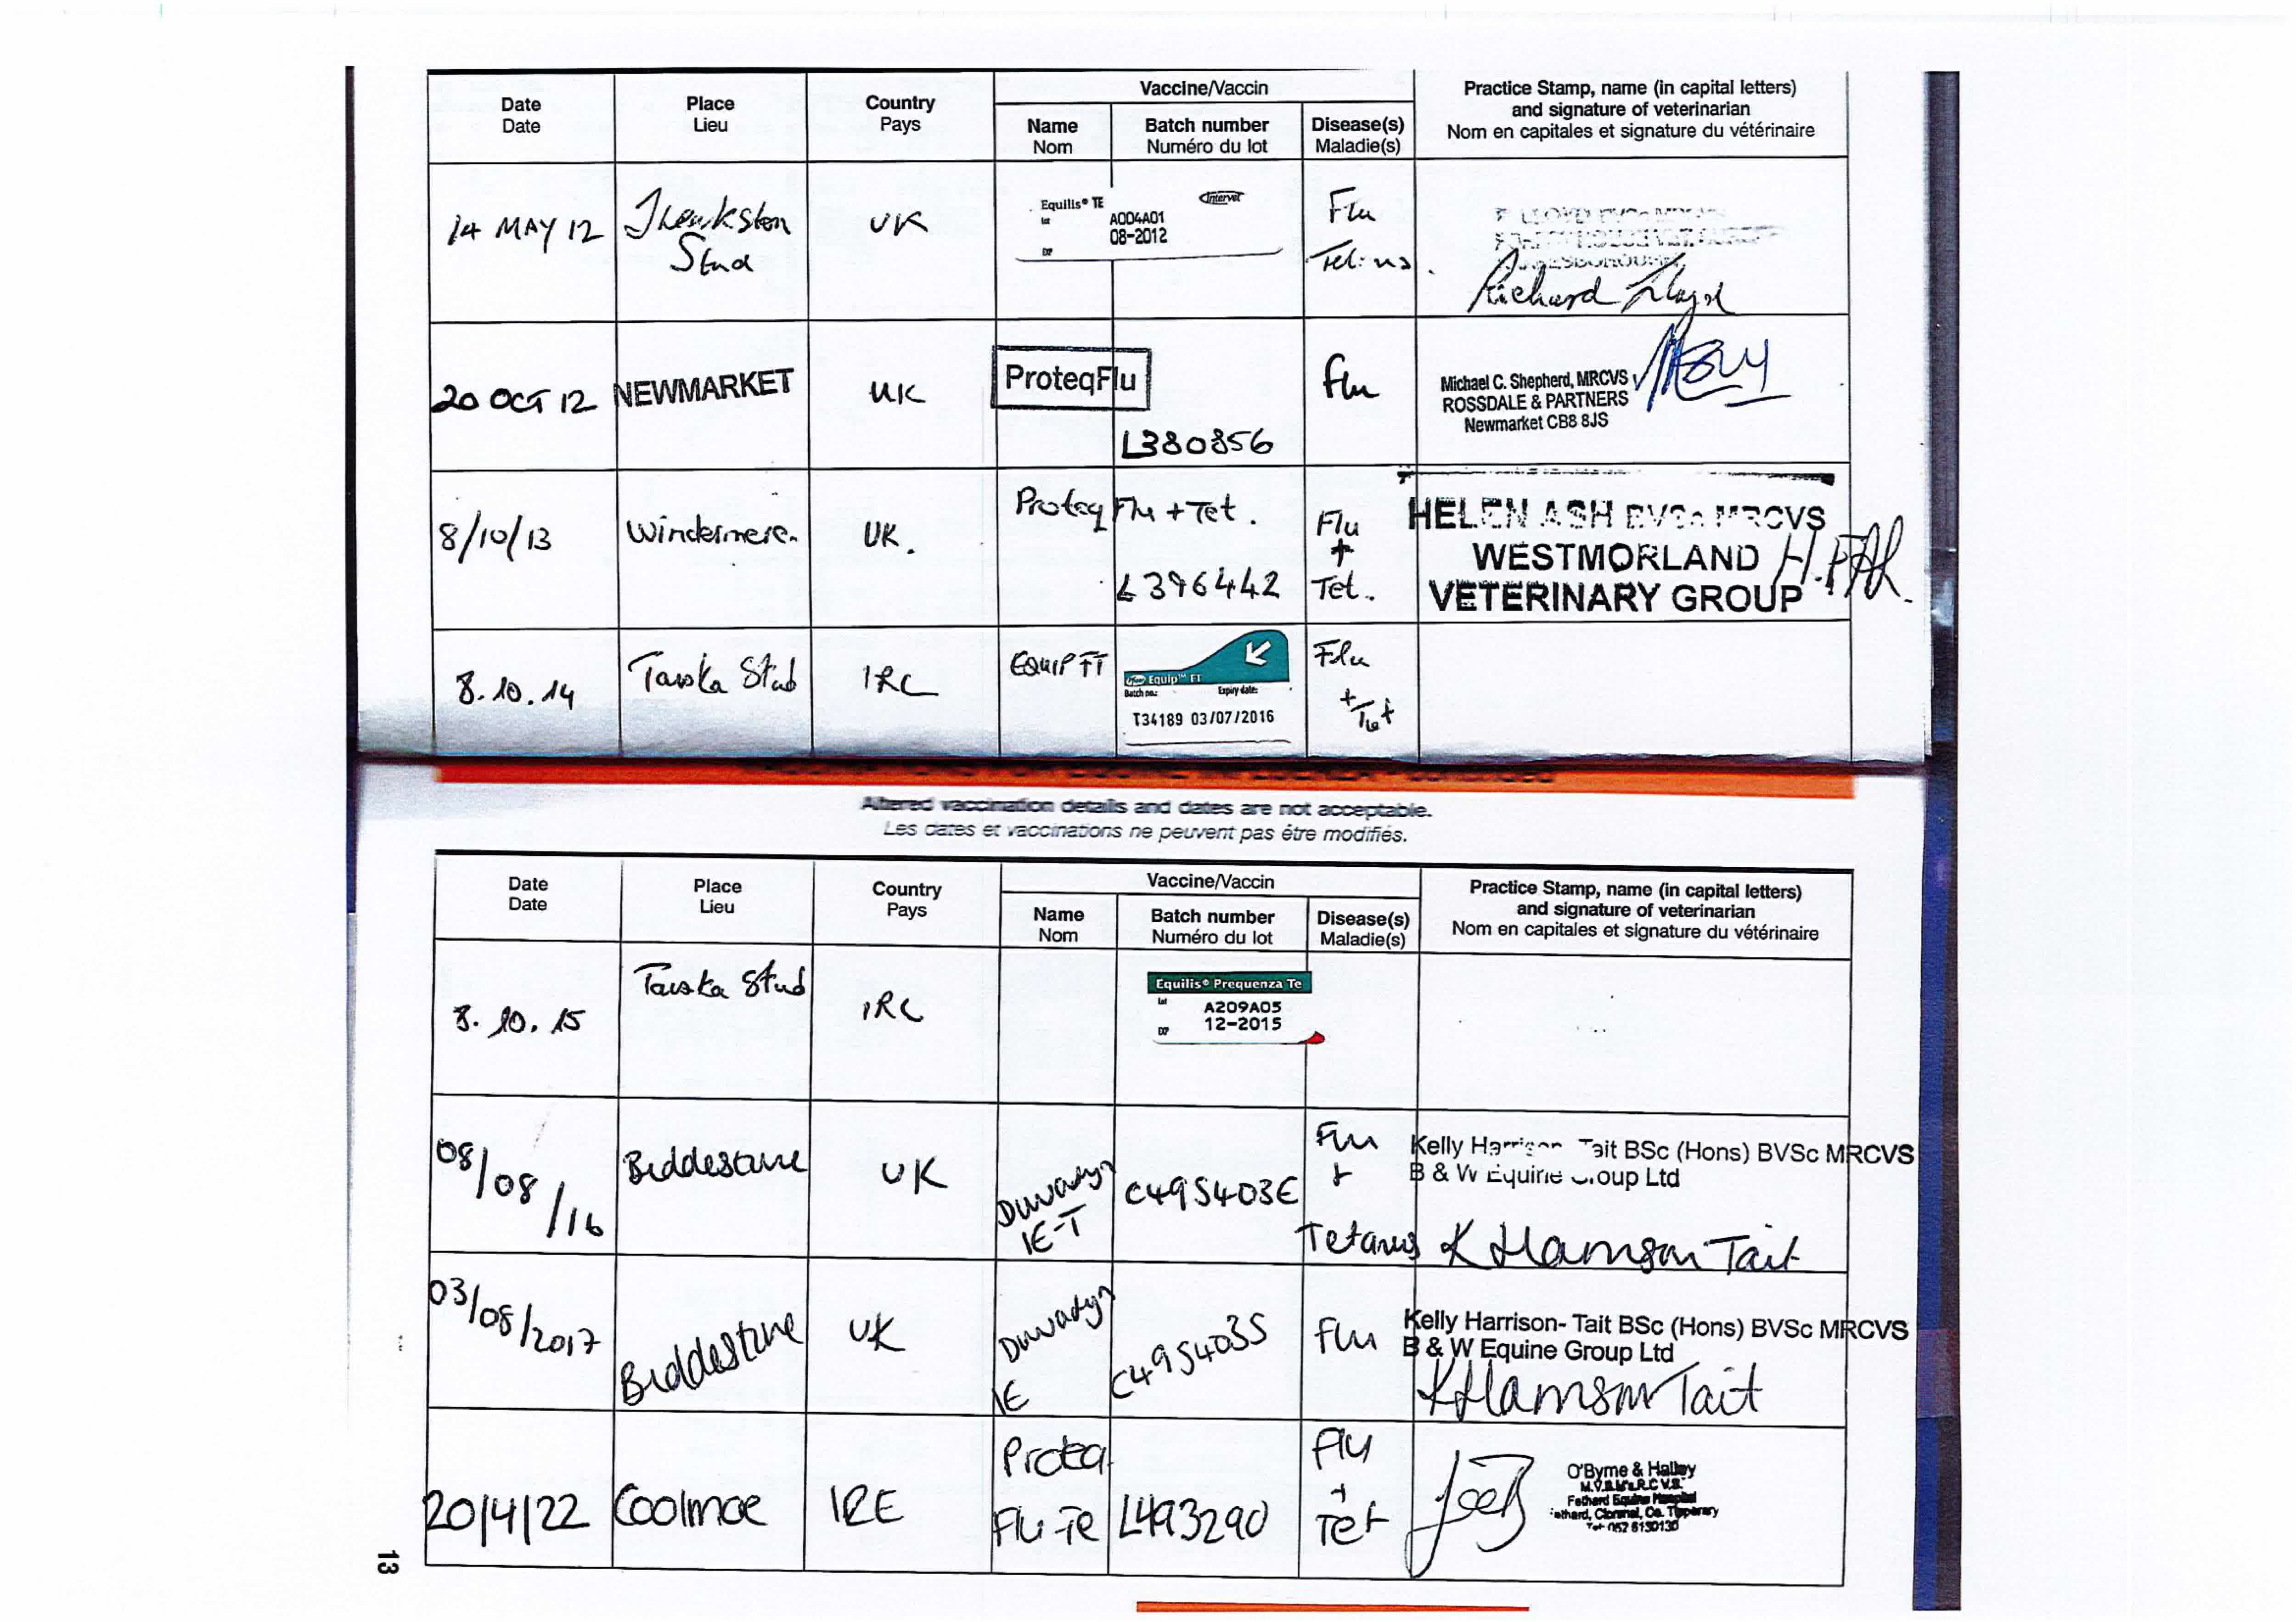 Date
Date
Place
Lieu
Country
Pays
Vaccine/Vaccin
Name
Nom
Batch number
Numéro du lot
Disease(s)
Maladie(s)
Practice Stamp, name (in capital letters)
and signature of veterinarian
Nom en capitales et signature du vétérinaire
14 MAY 12
Stud
UK
Equilis® TE
Intervet
Lot
A004A01
08-2012
EXP
Flu
LLOYD
Richard Lloyd
20 OCT 12
NEWMARKET
UK
ProteqFlu
L380856
Flu
Michael C. Shepherd, MRCVS
ROSSDALE & PARTNERS
Newmarket CB8 8JS
8/10/13
Windermere.
UK.
Proteq Flu + Tet.
L396442
Flu
+
Tet.
HELEN ASH BVSc MRCVS
WESTMORLAND
VETERINARY GROUP
8.10.14
Stud
EQUIP FT
Equip™ FT
Batch no.:
Expiry date:
T34189 03/07/2016
Flu
+
Tet
Altered vaccination details and dates are not acceptable.
Les dates et vaccinations ne peuvent pas être modifiés.
Date
Date
Place
Lieu
Country
Pays
Vaccine/Vaccin
Name
Nom
Batch number
Numéro du lot
Disease(s)
Maladie(s)
Practice Stamp, name (in capital letters)
and signature of veterinarian
Nom en capitales et signature du vétérinaire
8.10.15
Stud
Equilis® Prequenza Te
Lot
A209A05
12-2015
EXP
08/08/16
Biddestone
UK
Duvaxyn
IE-T
C495403E
Flu
+
Tetanus
Kelly Harrison Tait BSc (Hons) BVSc MRCVS
B & W Equine Group Ltd
K Harrison Tait
03/08/2017
Biddestone
UK
Duvaxyn
IE
C495403S
Flu
Kelly Harrison- Tait BSc (Hons) BVSc MRCVS
B & W Equine Group Ltd
K Harrison Tait
20/4/22
Coolmore
IRE
Proteq
Flu Te
L493290
Flu
+
Tet
O'Byrne & Halley
M.V.B. M.R.C.V.S.
Fethard Equine Hospital
Fethard, Clonmel, Co. Tipperary
Tel: 052 6130130
13